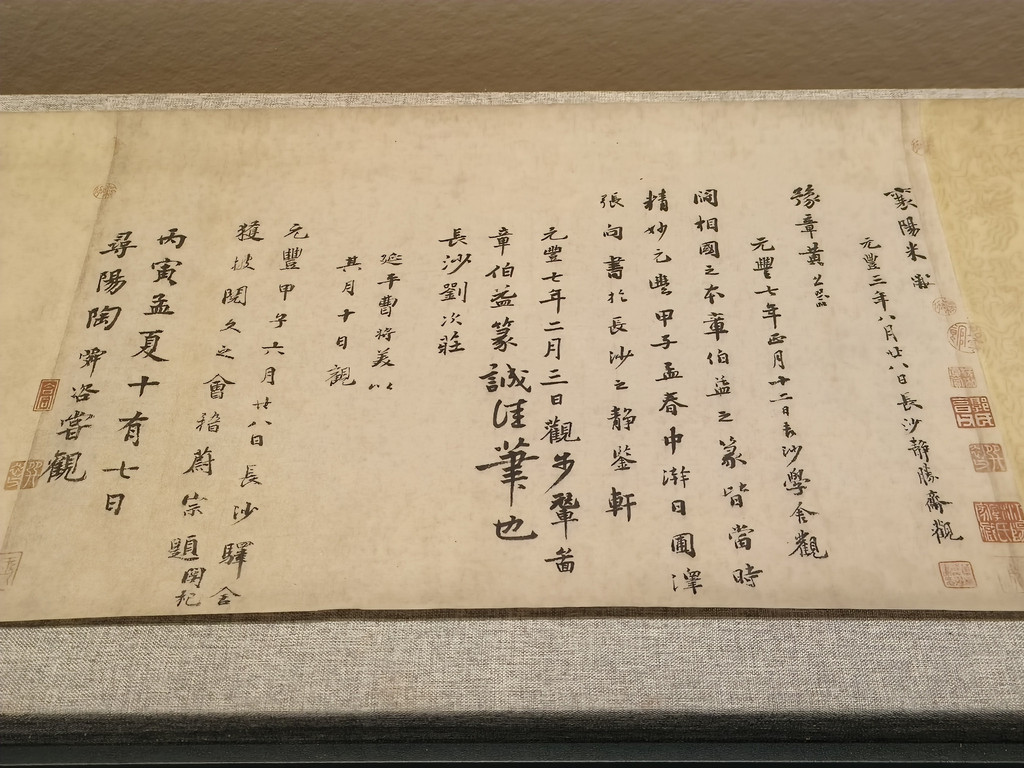 襄陽米黻
元豐三年八月廿八日長沙靜勝齋觀
豫章黃公器
元豐七年正月十二日長沙學舍觀
閻相國之本章伯益之篆皆當時
精妙元豐甲子孟春中澣日圃澤
張向書於長沙之靜鑒軒
元豐七年二月三日觀步輦圖
章伯益篆誠佳筆也
長沙劉次莊
延平曹將美以
其月十日觀
元豐甲子六月廿八日長沙驛舍
獲披閱久之會稽蔚宗題閱記
丙寅孟夏十有七日
尋陽陶舜咨嘗觀